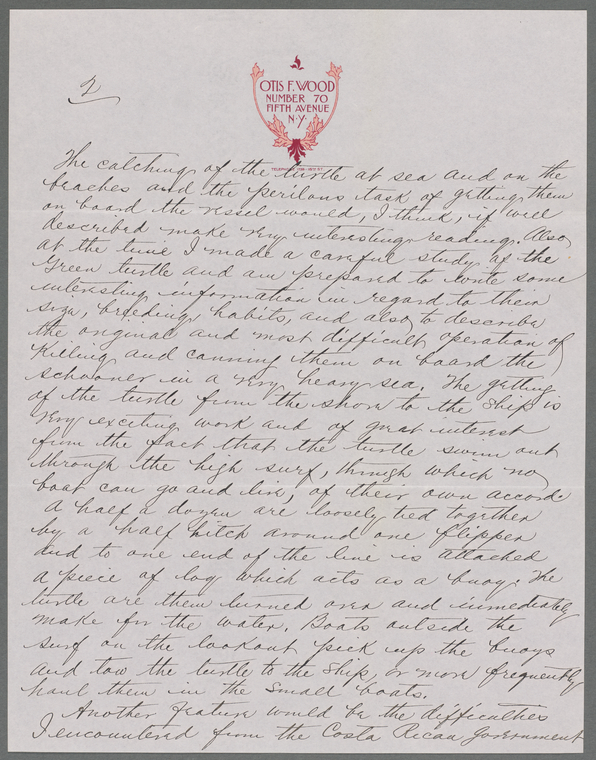 2
OTIS F. WOOD
NUMBER 70
FIFTH AVENUE
N.Y.
The catching of the turtle at sea and on the
beaches and the perilous task of getting them
on board the vessel would, I think, if well
described make very interesting reading. Also
at the time I made a careful study of the
Green turtle and am prepared to write some
interesting information in regard to their
size, breeding, habits, and also to describe
the original and most difficult operation of
Killing and canning them on board the
schooner in a very heavy sea. The getting
of the turtle from the shore to the ship is
very exciting work and of great interest
from the fact that the turtle swim out
through the high surf, through which no
boat can go and live, of their own accord
A half a dozen are loosely tied together
by a half hitch around one flipper
and to one end of the line is attached
a piece of log which acts as a buoy. The
turtle are then turned over and immediately
make for the water. Boats outside the
surf on the lookout pick up the buoys
and tow the turtle to the ship, or more frequently
haul them in the small boats.
Another feature would be the difficulties
I encountered from the Costa Rican Government